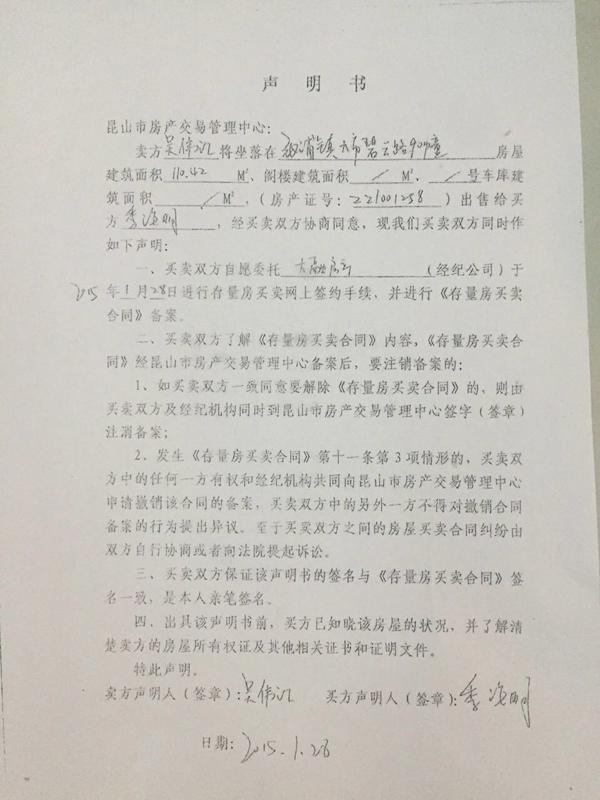 声明书
昆山市房产交易管理中心：
卖方吴伟 将坐落在 镇 碧云路 房屋
建筑面积 110.42 M²、阁楼建筑面积 / M²、 / 号车库建
筑面积 / M²，（房产证号：221001258）出售给买
方 季 明 ，经买卖双方协商同意，现我们买卖双方同时作
如下声明：
一、买卖双方自愿委托 （经纪公司）于
2015年1月28日进行存量房买卖网上签约手续，并进行《存量房买卖
合同》备案。
二、买卖双方了解《存量房买卖合同》内容，《存量房买卖合
同》经昆山市房产交易管理中心备案后，要注销备案的：
1、如买卖双方一致同意要解除《存量房买卖合同》的，则由
买卖双方及经纪机构同时到昆山市房产交易管理中心签字（签章）
注消备案；
2、发生《存量房买卖合同》第十一条第3项情形的，买卖双
方中的任何一方有权和经纪机构共同向昆山市房产交易管理中心
申请撤销该合同的备案，买卖双方中的另外一方不得对撤销合同
备案的行为提出异议。至于买卖双方之间的房屋买卖合同纠纷由
双方自行协商或者向法院提起诉讼。
三、买卖双方保证该声明书的签名与《存量房买卖合同》签
名一致，是本人亲笔签名。
四、出具该声明书前，买方已知晓该房屋的状况，并了解清
楚卖方的房屋所有权证及其他相关证书和证明文件。
特此声明。
卖方声明人（签章）：吴伟 买方声明人（签章）：季 明
日期：2015.1.28